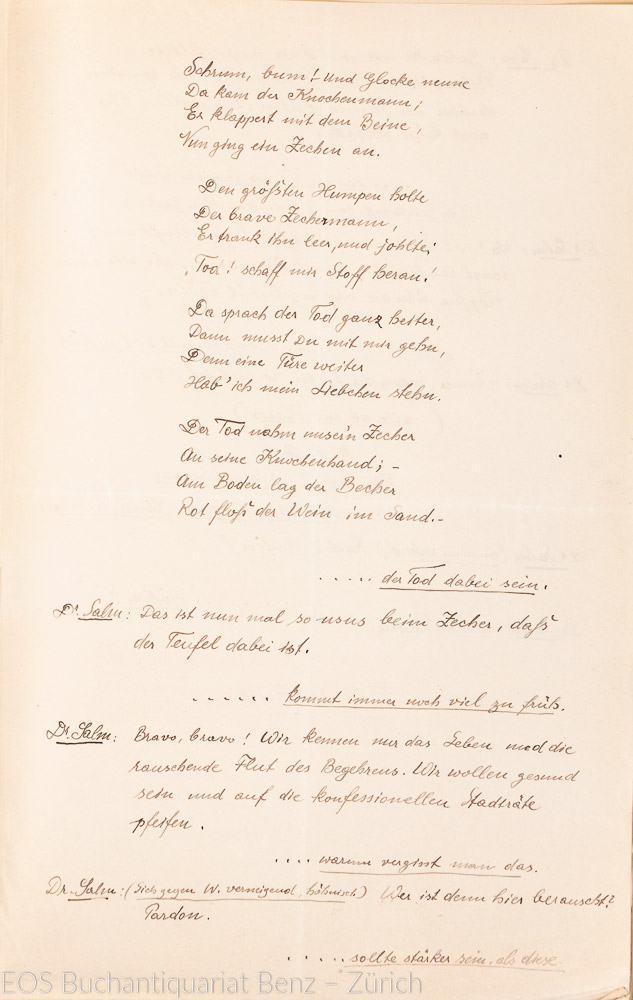 Schrum, bum! Und Glocke neune
Da kam der Knochenmann;
Er klappert mit dem Beine,
Nun ging ein Zechen an.
Den größten Humpen holte
Der brave Zechermann,
Er trank ihn leer, und johlte;
„Tod! schaff mir Stoff heran!
Da sprach der Tod ganz heiter,
Dann musst Du mit mir gehn,
Denn eine Türe weiter
Hab' ich mein Liebchen stehn.
Der Tod nahm unser'n Zecher
An seine Knochenhand; –
Am Boden lag der Becher
Rot floß der Wein im Sand.–
..... der Tod dabei sein.
Dr. Salm: Das ist nun mal so usus beim Zecher, daß
der Teufel dabei ist.
...... kommt immer noch viel zu früh.
Dr. Salm: Bravo, bravo! Wir kennen nur das Leben und die
rauschende Flut des Begehrens. Wir wollen gesund
sein und auf die konfessionellen Stadträte
pfeifen.
.... warum vergisst man das.
Dr. Salm: (Sich gegen W. verneigend, höhnisch) Wer ist denn hier berauscht?
Pardon.
...... sollte stärker sein, als diese.
EOS Buchantiquariat Benz – Zürich